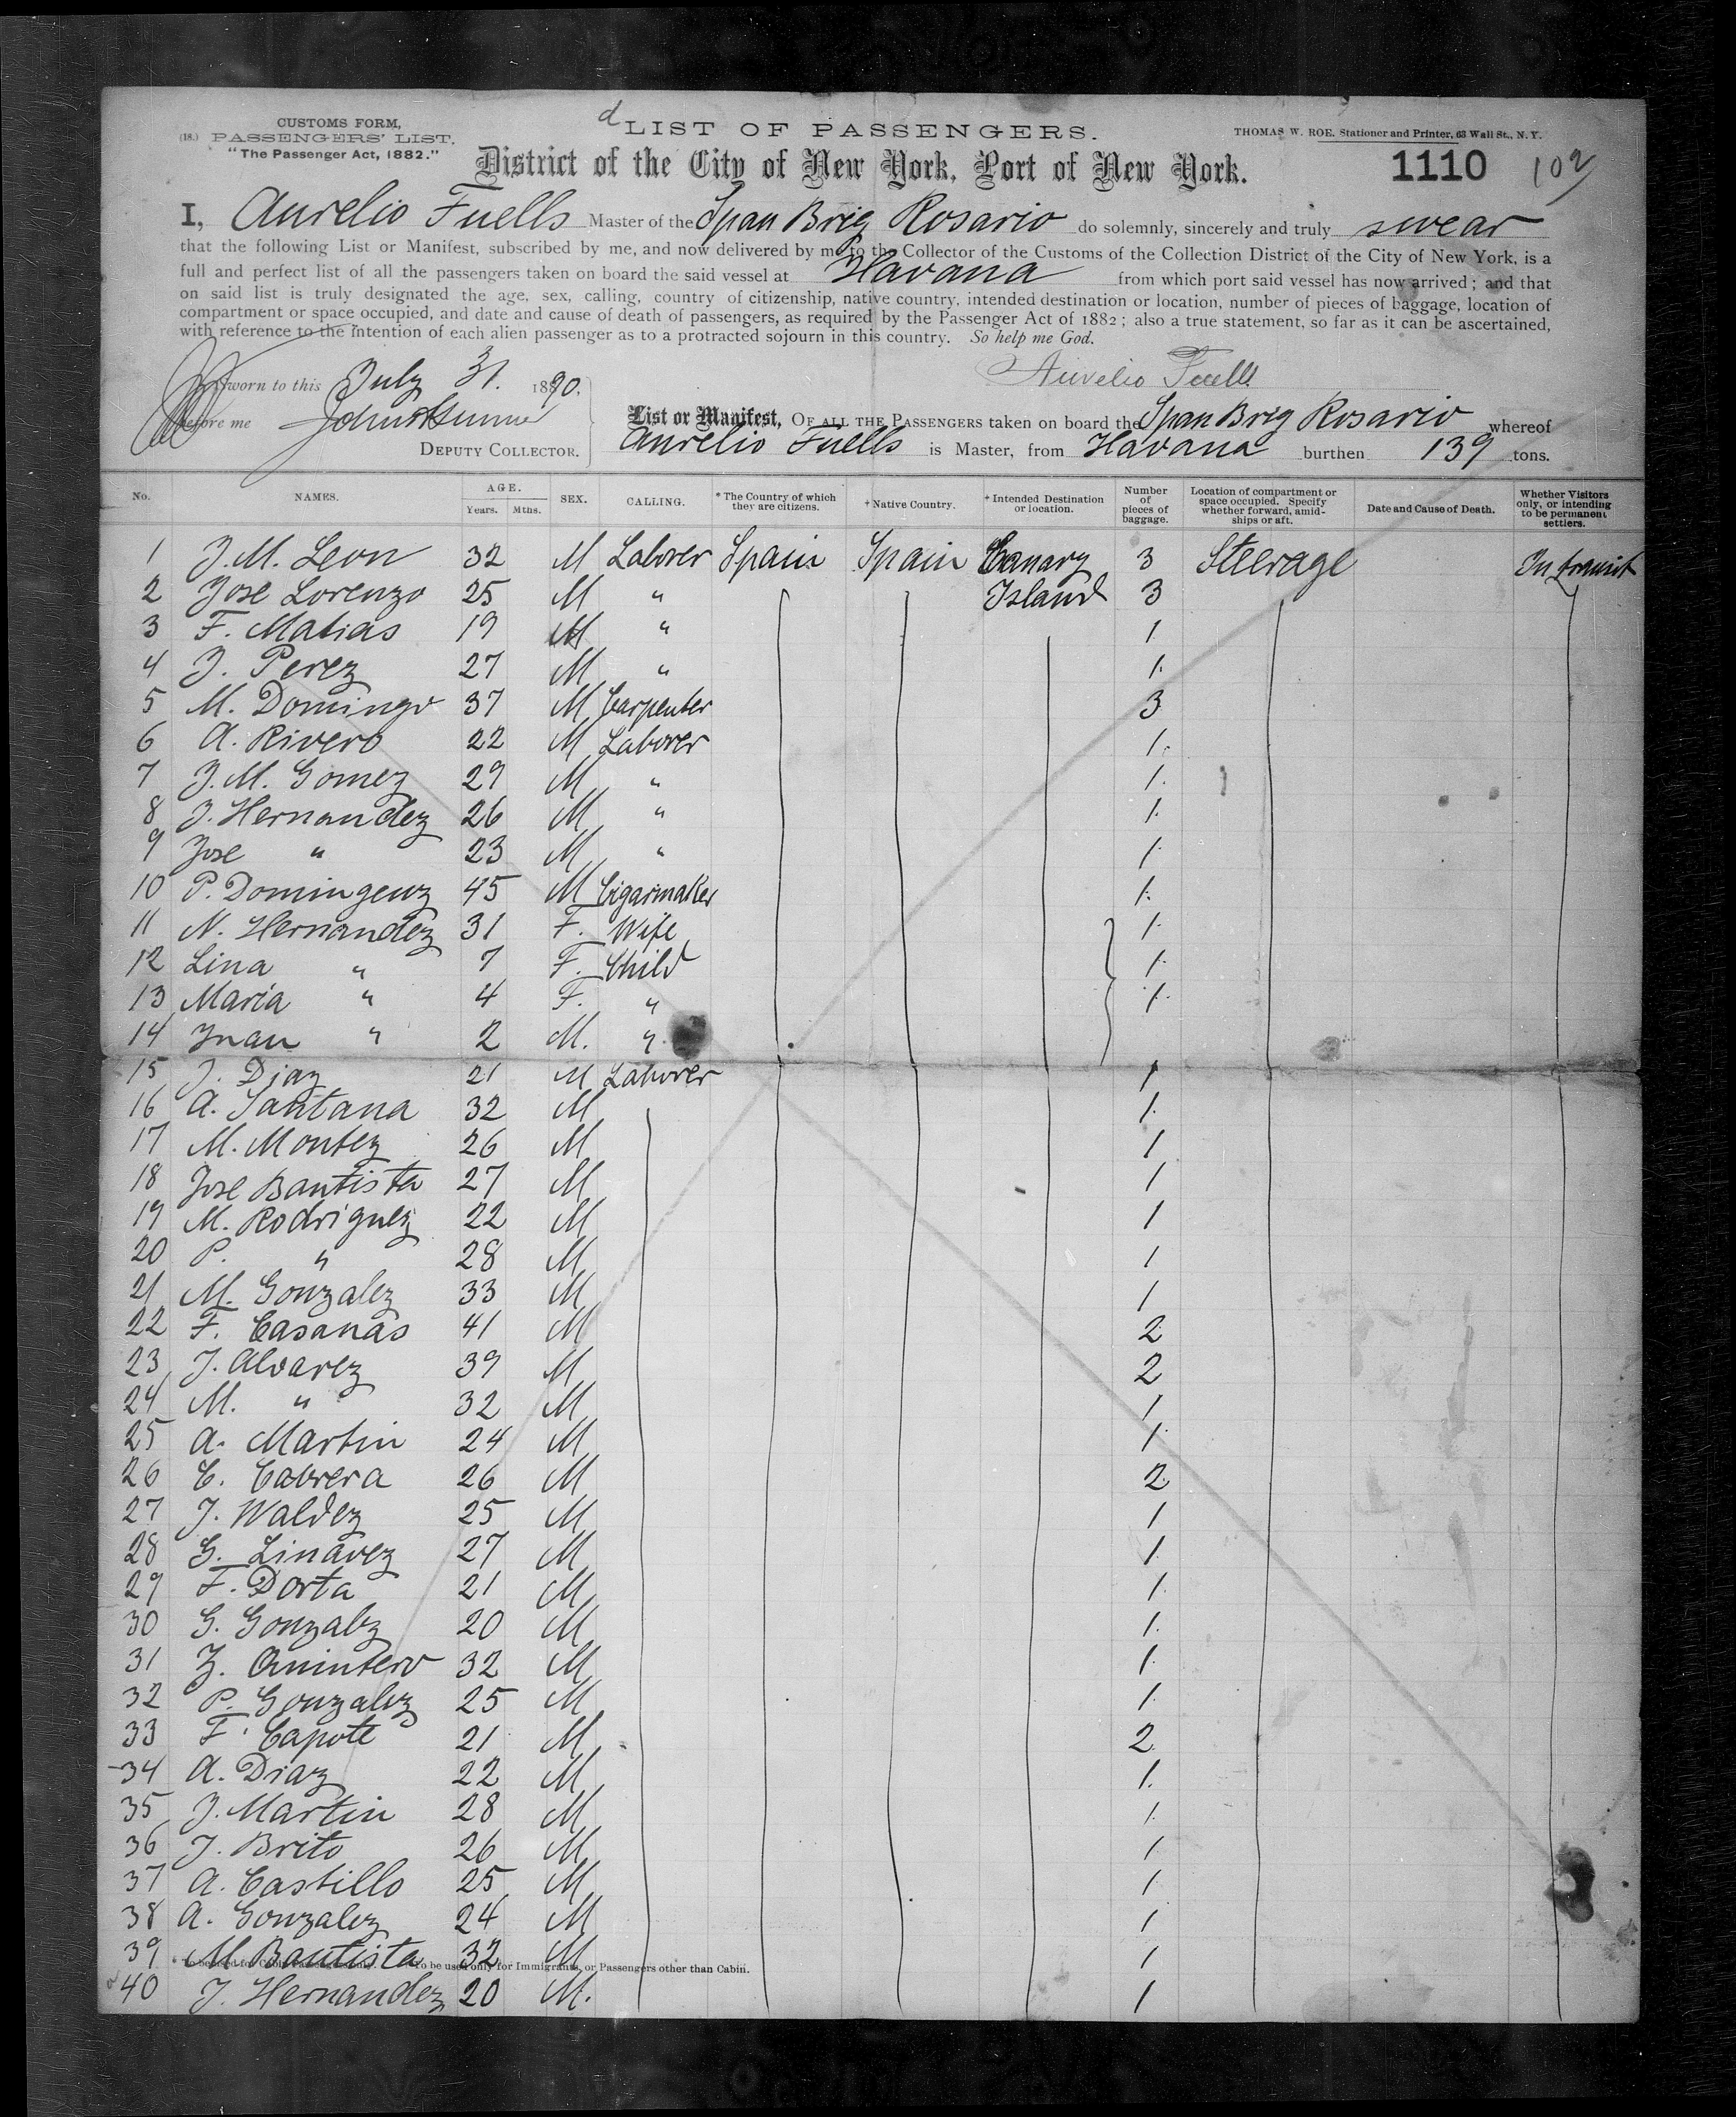 CUSTOMS FORM,
(18.) PASSENGERS' LIST.
"The Passenger Act, 1882."
d LIST OF PASSENGERS.
THOMAS W. ROE. Stationer and Printer, 63 Wall St., N.Y.
District of the City of New York, Port of New York.
1110 102
I, Aurelio Fuells Master of the Span Brig Rosario do solemnly, sincerely and truly swear
that the following List or Manifest, subscribed by me, and now delivered by me to the Collector of the Customs of the Collection District of the City of New York, is a
full and perfect list of all the passengers taken on board the said vessel at Havana from which port said vessel has now arrived; and that
on said list is truly designated the age, sex, calling, country of citizenship, native country, intended destination or location, number of pieces of baggage, location of
compartment or space occupied, and date and cause of death of passengers, as required by the Passenger Act of 1882; also a true statement, so far as it can be ascertained,
with reference to the intention of each alien passenger as to a protracted sojourn in this country. So help me God.
Sworn to this July 31. 1890. Aurelio Fuells
Before me
DEPUTY COLLECTOR.
List or Manifest, OF ALL THE PASSENGERS taken on board the Span Brig Rosario whereof
Aurelio Fuells is Master, from Havana burthen 139 tons.
No. NAMES. AGE. Years. Mths. SEX. CALLING. * The Country of which they are citizens. † Native Country. † Intended Destination or location. Number of pieces of baggage. Location of compartment or space occupied. Specify whether forward, amidships or aft. Date and Cause of Death. Whether Visitors only, or intending to be permanent settlers.
1 J. M. Leon 32 M Laborer Spain Spain Canary 3 Steerage In transit
2 Jose Lorenzo 25 M " Island 3
3 F. Matias 19 M " 1
4 J. Perez 27 M " 1.
5 M. Domingo 37 M Carpenter 3
6 A. Rivero 22 M Laborer 1.
7 J. M. Gomez 29 M " 1.
8 J. Hernandez 26 M " 1.
9 Jose " 23 M " 1.
10 P. Domingeuz 45 M Cigarmaker 1.
11 N. Hernandez 31 F. Wife 1.
12 Lina " 7 F. Child 1.
13 Maria " 4 F. " 1.
14 Juan " 2 M. "
15 J. Diaz 21 M Laborer 1
16 A. Santana 32 M 1.
17 M. Montez 26 M 1
18 Jose Bautista 27 M 1
19 M. Rodriguez 22 M 1
20 P. " 28 M 1
21 M. Gonzalez 33 M 1
22 F. Casanas 41 M 2
23 J. Alvarez 39 M 2
24 M. " 32 M 1
25 A. Martin 24 M 1.
26 C. Cabrera 26 M 2
27 J. Waldez 25 M 1
28 G. Linarez 27 M 1.
29 F. Dorta 21 M 1.
30 G. Gonzalez 20 M 1.
31 Z. Quintero 32 M 1.
32 P. Gonzalez 25 M 1.
33 F. Capote 21 M 2.
34 A. Diaz 22 M 1.
35 J. Martin 28 M 1.
36 J. Brito 26 M 1
37 A. Castillo 25 M 1
38 A. Gonzalez 24 M 1
39 M. Bautista 32 M 1
to be used only for Immigrants, or Passengers other than Cabin.
40 J. Hernandez 20 M. 1